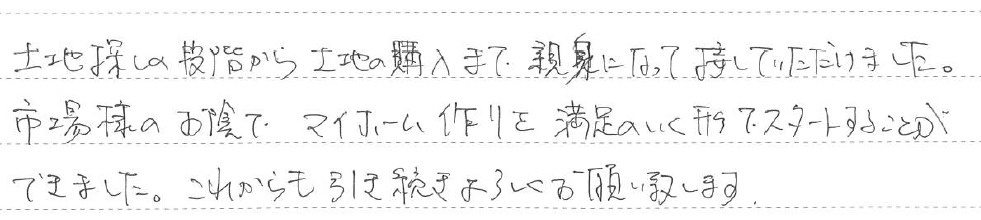 土地探しの段階から土地の購入まで親身になって接していただけました。
市場様のお陰でマイホーム作りを満足のいく形でスタートすることが
できました。これからも引き続きよろしくお願い致します.